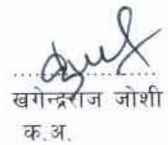 खगेन्द्रराज जोशी
क.अ.